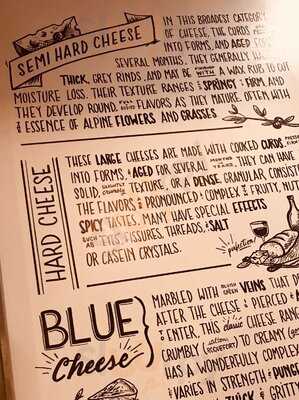 SEMI HARD CHEESE
IN THIS BROADEST CATEGORY
OF CHEESE, THE CURDS
INTO FORMS, AND AGED FOR
SEVERAL MONTHS. THEY GENERALLY HA
THICK, GREY RINDS, AND MAY BE FINISHED WITH A WAX RUB TO CUT
MOISTURE LOSS. THEIR TEXTURE RANGES SPRINGY & FIRM, AND
THEY DEVELOP ROUND, FULL-BODIED FLAVORS AS THEY MATURE, OFTEN WITH
& ESSENCE OF ALPINE FLOWERS AND GRASSES.
HARD CHEESE
THESE LARGE CHEESES ARE MADE WITH COOKED CURDS PRESSED FIRMLY
INTO FORMS, & AGED FOR SEVERAL MONTHS YEARS, THEY CAN HAVE
SOLID, SLIGHTLY CRUMBLY TEXTURE, OR A DENSE, GRANULAR, CONSIST
THE FLAVORS PRONOUNCED & COMPLEX, FRUITY, NUT
SPICY TASTES. MANY HAVE SPECIAL EFFECTS
SUCH AS EYES, FISSURES, THREADS, & SALT
OR CASEIN CRYSTALS.
perfection!
BLUE
Cheese
MARBLED WITH BLUISH GREEN VEINS THAT
AFTER THE CHEESE PIERCED &
ENTER, THIS classic CHEESE RAN
CRUMBLY (ROQUEFORT) TO CREAMY
HAS A WONDERFULLY COMPLEX
& VARIES IN STRENGTH & PUNG
THICK & GRITT